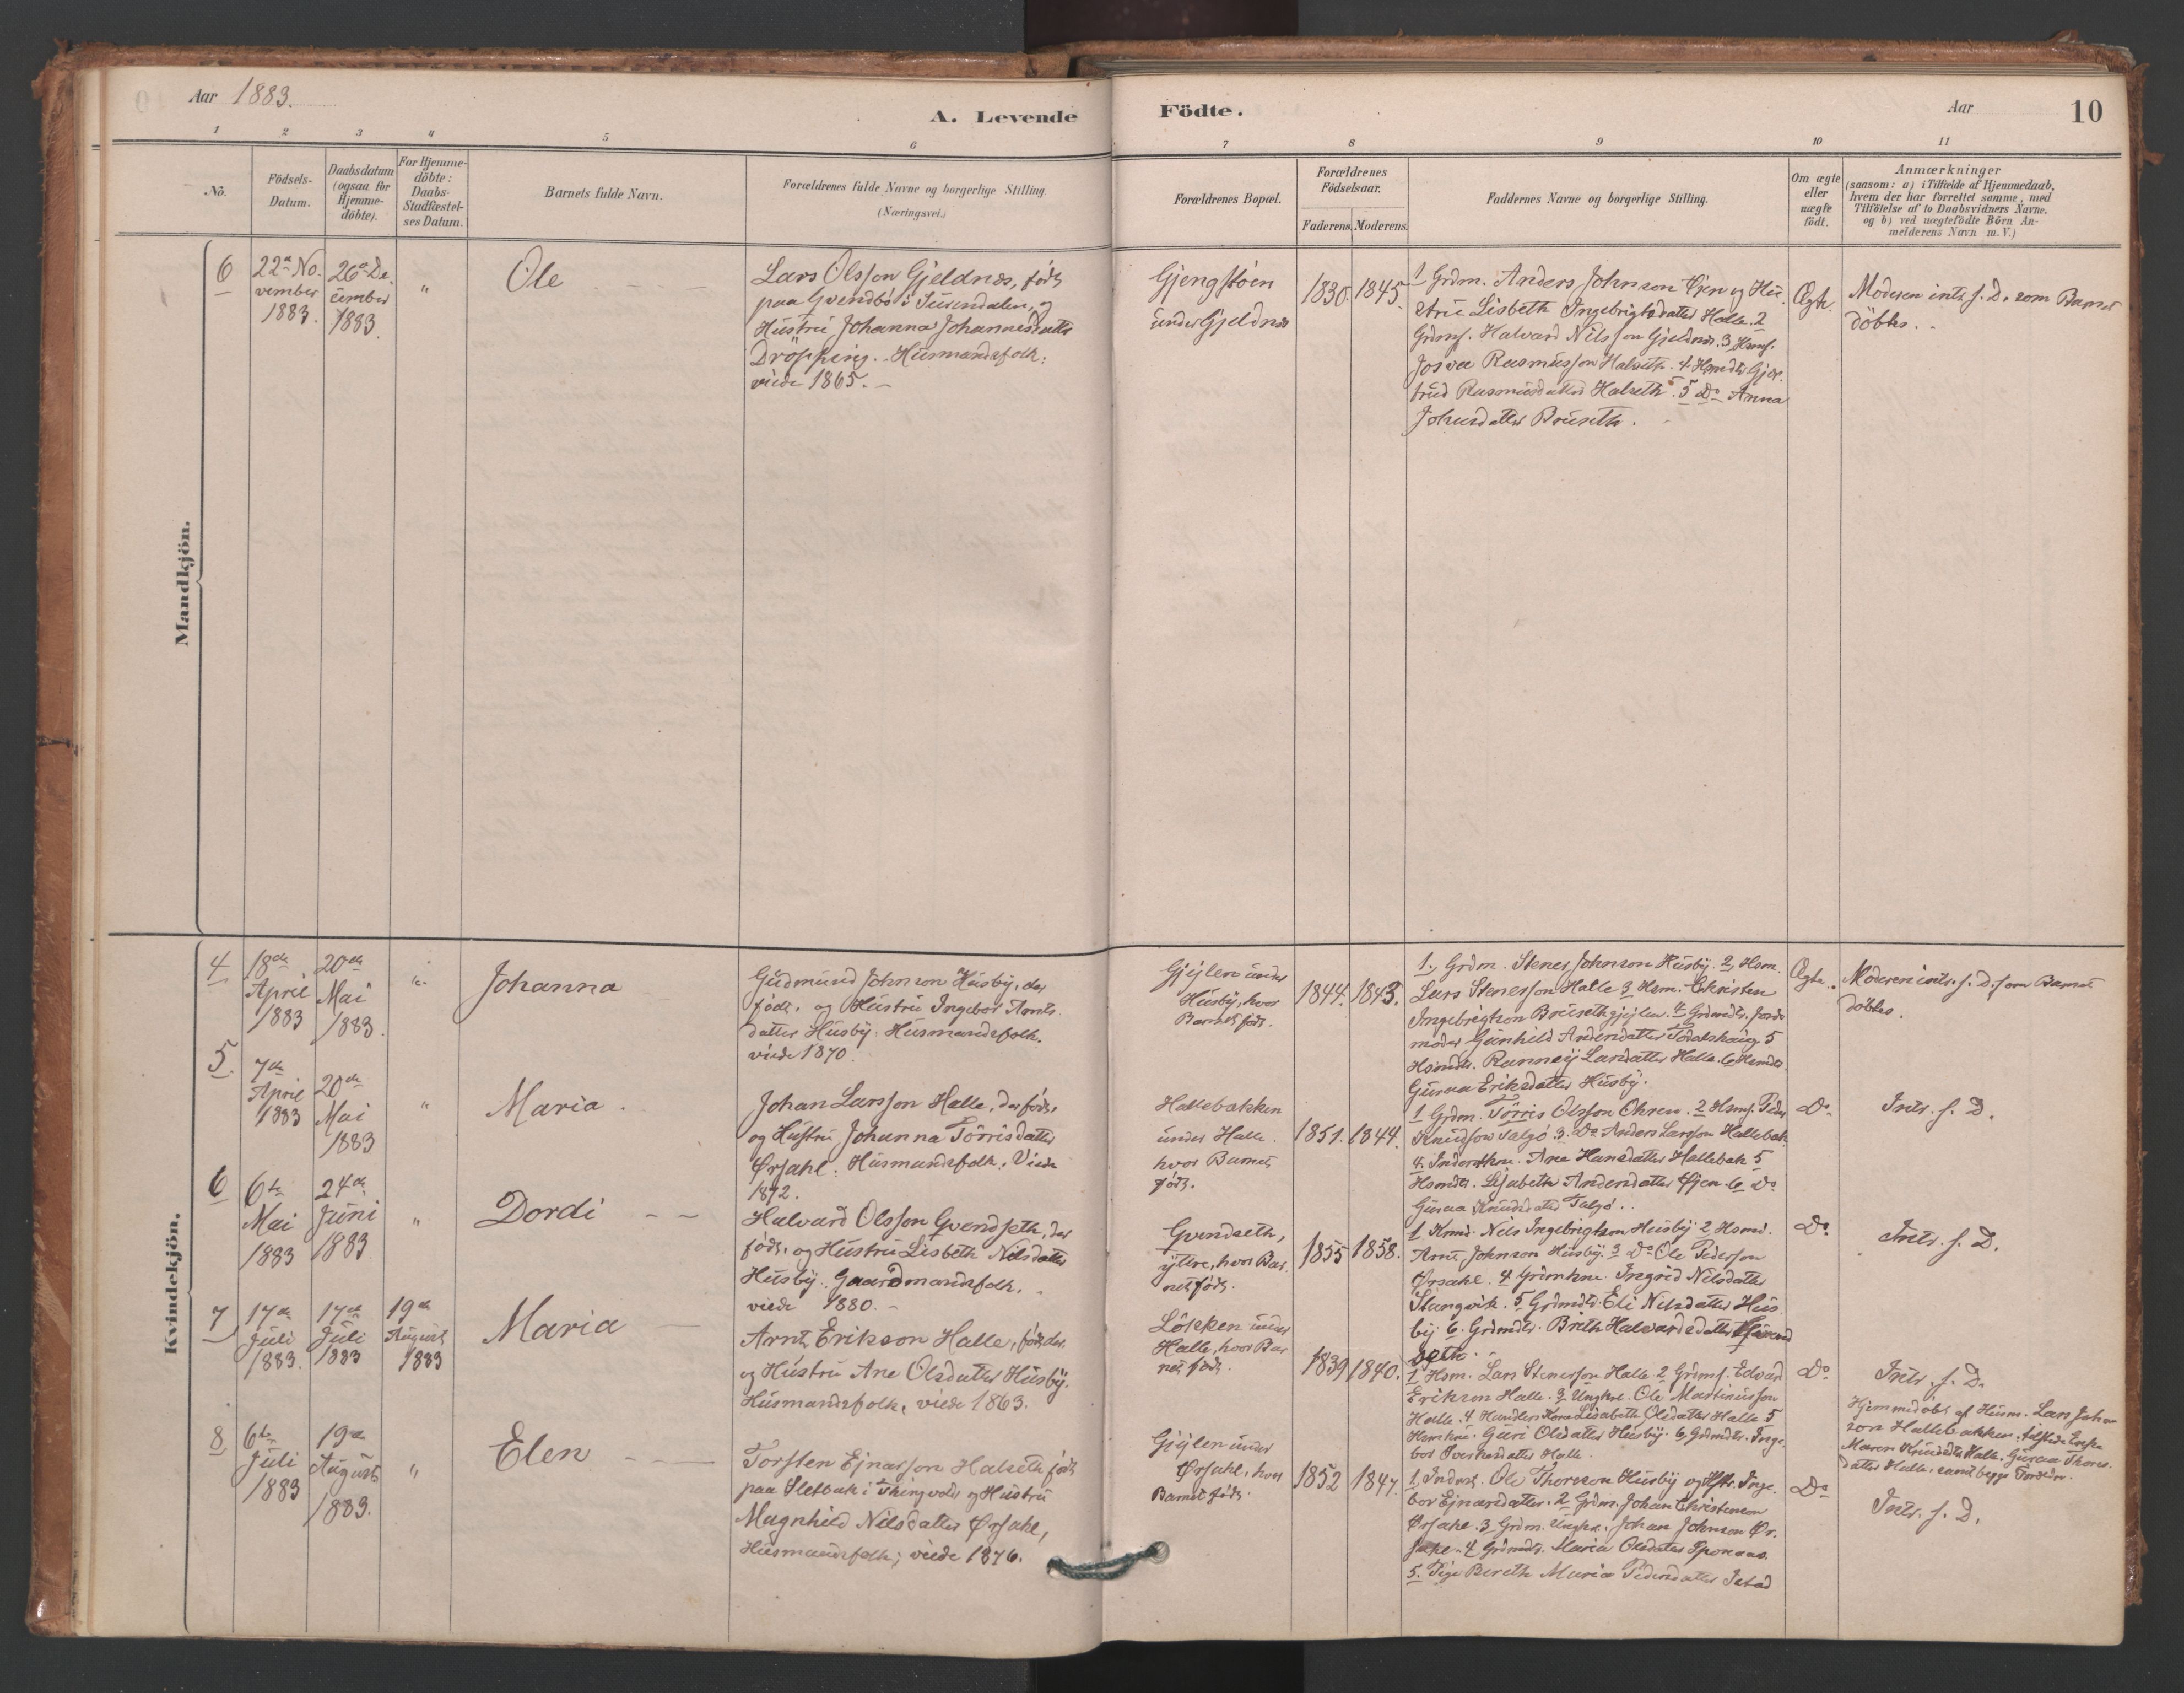 Aar 1883.
A. Levende Födte.
Aar
10
1 2 3 4 5 6 7 8 9 10 11
No.
Födsels-
Datum.
Daabsdatum
(ogsaa for
Hjemme-
döbte).
For Hjemme-
döbte:
Daabs-
Stadfæstel-
ses Datum.
Barnets fulde Navn.
Forældrenes fulde Navne og borgerlige Stilling.
(Næringsvei.)
Forældrenes Bopæl.
Forældrenes
Födselsaar.
Faderens. Moderens.
Faddernes Navne og borgerlige Stilling.
Om ægte
eller
uægte
födt.
Anmærkninger
(saasom: a) i Tilfælde af Hjemmedaab,
hvem der har forrettet samme, med
Tilföielse af to Daabsvidners Navne,
og b) ved uægtefödte Börn An-
melderens Navn m.V.)
Mandkjön.
6
22de No-
vember
1883.
26de De-
cember
1883.
"
Ole
Lars Olsson Gjeldnes, födt
paa Qvendbö i Surendalen, og
Hustru Johanna Johannesdatter
Dröpping. Husmandsfolk.
viede 1865.
Gjengstöen
under Gjeldnes
1830. 1845.
1 Grdm. Anders Johnson Øjen og Hu-
stru Lisbeth Ingebrigtsdatter Halle. 2
Grdms. Halvard Nilsson Gjeldnes. 3 Hsms.
Josva Rasmusson Halseth. 4 Hsmdtr Gjer-
trud Rasmusdatter Halseth. 5 Do Anna
Johnsdatter Bruseth.
Ægte.
Moderen intr. f. D. som Barnet
döbtes.
Kvindekjön.
4
18de
April
1883
20de
Mai
1883.
"
Johanna
Gudmund Johnson Husby, der
födt, og Hustru Ingebor Arnts-
datter Husby. Husmandsfolk.
viede 1870.
Gjejlen under
Husby, hvor
Barnet födt.
1844. 1843.
1. Grdm. Stener Johnson Husby. 2, Hsm.
Lars Stenersson Halle 3 Hsm. Christen
Ingebrigtson Brusethgjejlen. 4 Grdmdtr. Jorde-
moder Gunhild Andersdatter Todalshaug. 5
Hsmdtr. Rannej Larsdatter Halle. 6 Hsmdtr.
Guraa Eriksdatter Husby.
Ægte.
Moderen intr. f. D. som Barnet
döbtes.
5.
7de
April
1883
20de
Mai
1883
"
Maria.
Johan Larsson Halle, der födt,
og Hustru Johanna Törrisdatter
Ørsahl. Husmandsfolk. Viede
1872.
Hallebakken
under Halle.
hvor Barnet
födt.
1851. 1844.
1 Grdm. Törris Olsson Ohren. 2 Hsms. Peder
Knudson Talgö. 3. Do Anders Larsson Hallebak
4. Inderstkne. Ane Hansdatter Hallebak 5
Hsmdtr. Lisabeth Andersdatter Øjen. 6 Do
Guraa Knudsdatter Talgö.
Do
Intr. f. D.
6
6te
Mai
1883
24de
Juni
1883
"
Dordi
Halvard Olsson Qvendseth, der
födt, og Hustru Lisbeth Nilsdatter
Husby. Gaardmandsfolk.
viede 1880.
Qvendseth,
yttre, hvor Bar-
net födt.
1855 1858.
1 Nils Ingebrigtson Husby. 2 Hsmd.
Arnt Johnson Husby. 3 Do Ole Pederson
Ørsahl. 4 Grdmkne. Ingrid Nilsdatter
Stangvik. 5 Grdmdtr. Eli Nilsdatter Hus-
by 6. Grdmdtr. Breth Halvardsdatter Qvend-
seth.
Do
Intr. f. D.
7
17de
Juli
1883.
17de
Juli
1883
19de
August
1883
Maria
Arnt Erikson Halle, födt der
og Hustru Ane Olsdatter Husby.
Husmandsfolk, viede 1863.
Lökken under
Halle, hvor Bar-
net födt.
1839 1840.
1 Hsm. Lars Stenersson Halle 2 Grdms. Edvard
Erikson Halle. 3 Ungkrl. Ole Martinusson
Halle. 4 Handlers Kone Lisabeth Olsdatter Halle 5
Hsmkne. Guri Olsdatter Husby. 6 Grdmdtr. Inge-
bor Halle.
Do
Intr. f. D.
Hjemmedöbt af Husm. Lars Johan-
son Hallebakken, tilstede Enke
Maren Knudsdtr Halle, Guraa Thores-
datter Halle, samt begge Forældre.
8
6te
Juli
1883
19de
August
1883.
"
Elen
Torsten Ejnarsson Halseth födt
paa Sletbak i Thingvold og Hustru
Magnhild Nilsdatter Ørsahl,
Husmandsfolk; viede 1876.
Gjejlen under
Ørsahl, hvor
Barnet födt.
1852 1847.
1. Inderst. Ole Thoreson Husby og Hstr. Inge-
bor Ejnarsdatter. 2 Grdms. Johan Christenson
Ørsahl. 3 Grdm. Ungkr. Johan Johnson Ør-
sahl. 4 Grdmdtr. Maria Olsdatter
5. Pige Bereth Maria Pedersdatter
Do
Intr. f. D.